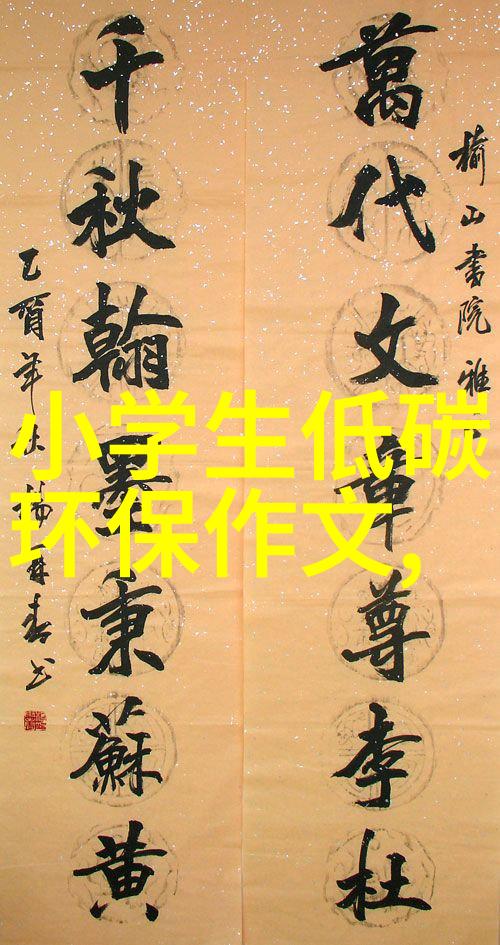 榆山書院雅
萬代文章尊李杜
千秋翰墨秉蘇黄
乙酉年
小学生低碳
环保作文,